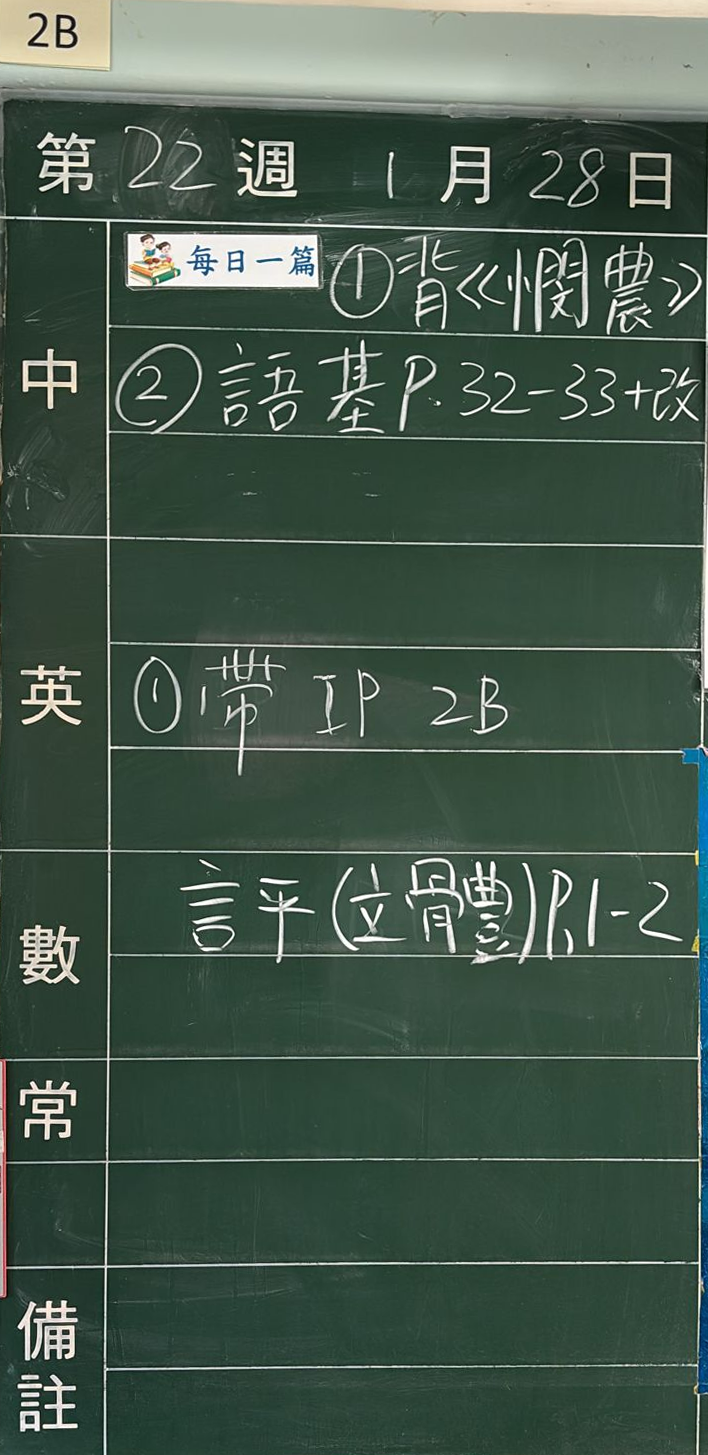 2B
第22週 1月28日
中
每日一篇 ①背《憫農》
②語基P.32-33+改
英
①帶 IP 2B
數
評(立體)P.1-2
常
備註